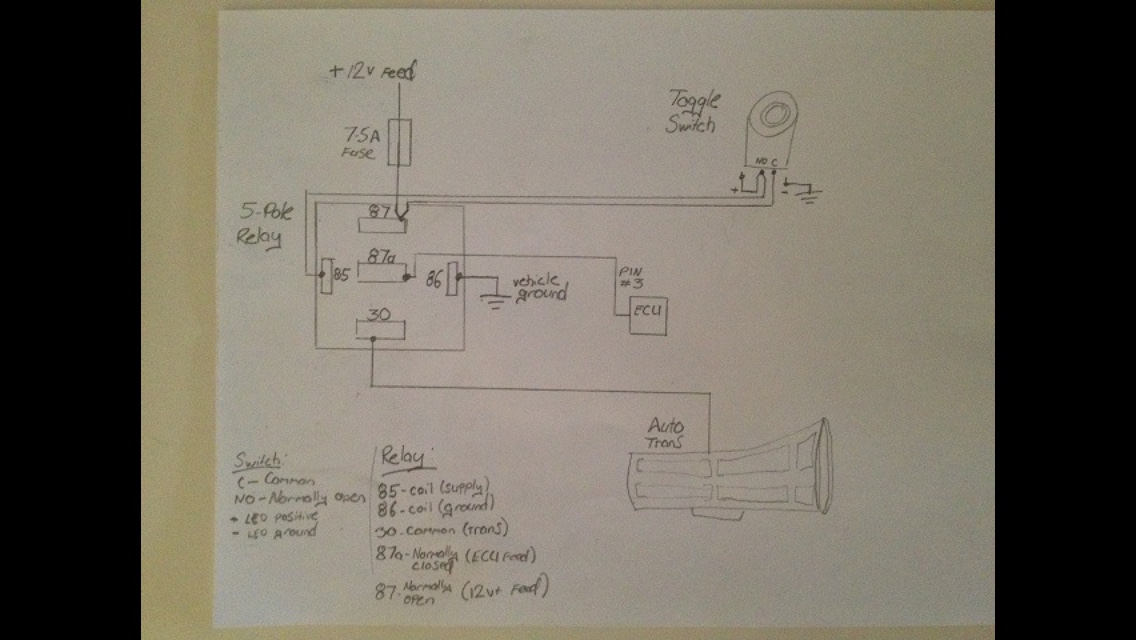 +12v Feed
7.5A
Fuse
Toggle
Switch
NO C
+ -
5-Pole
Relay
87
87a
85
86
30
vehicle
ground
PIN
#3
ECU
Auto
Trans
Switch:
C - Common
NO - Normally open
+ LED positive
- LED ground
Relay:
85 - coil (supply)
86 - coil (ground)
30 - Common (trans)
87a - Normally closed (ECU Feed)
87 - Normally open (12v+ Feed)